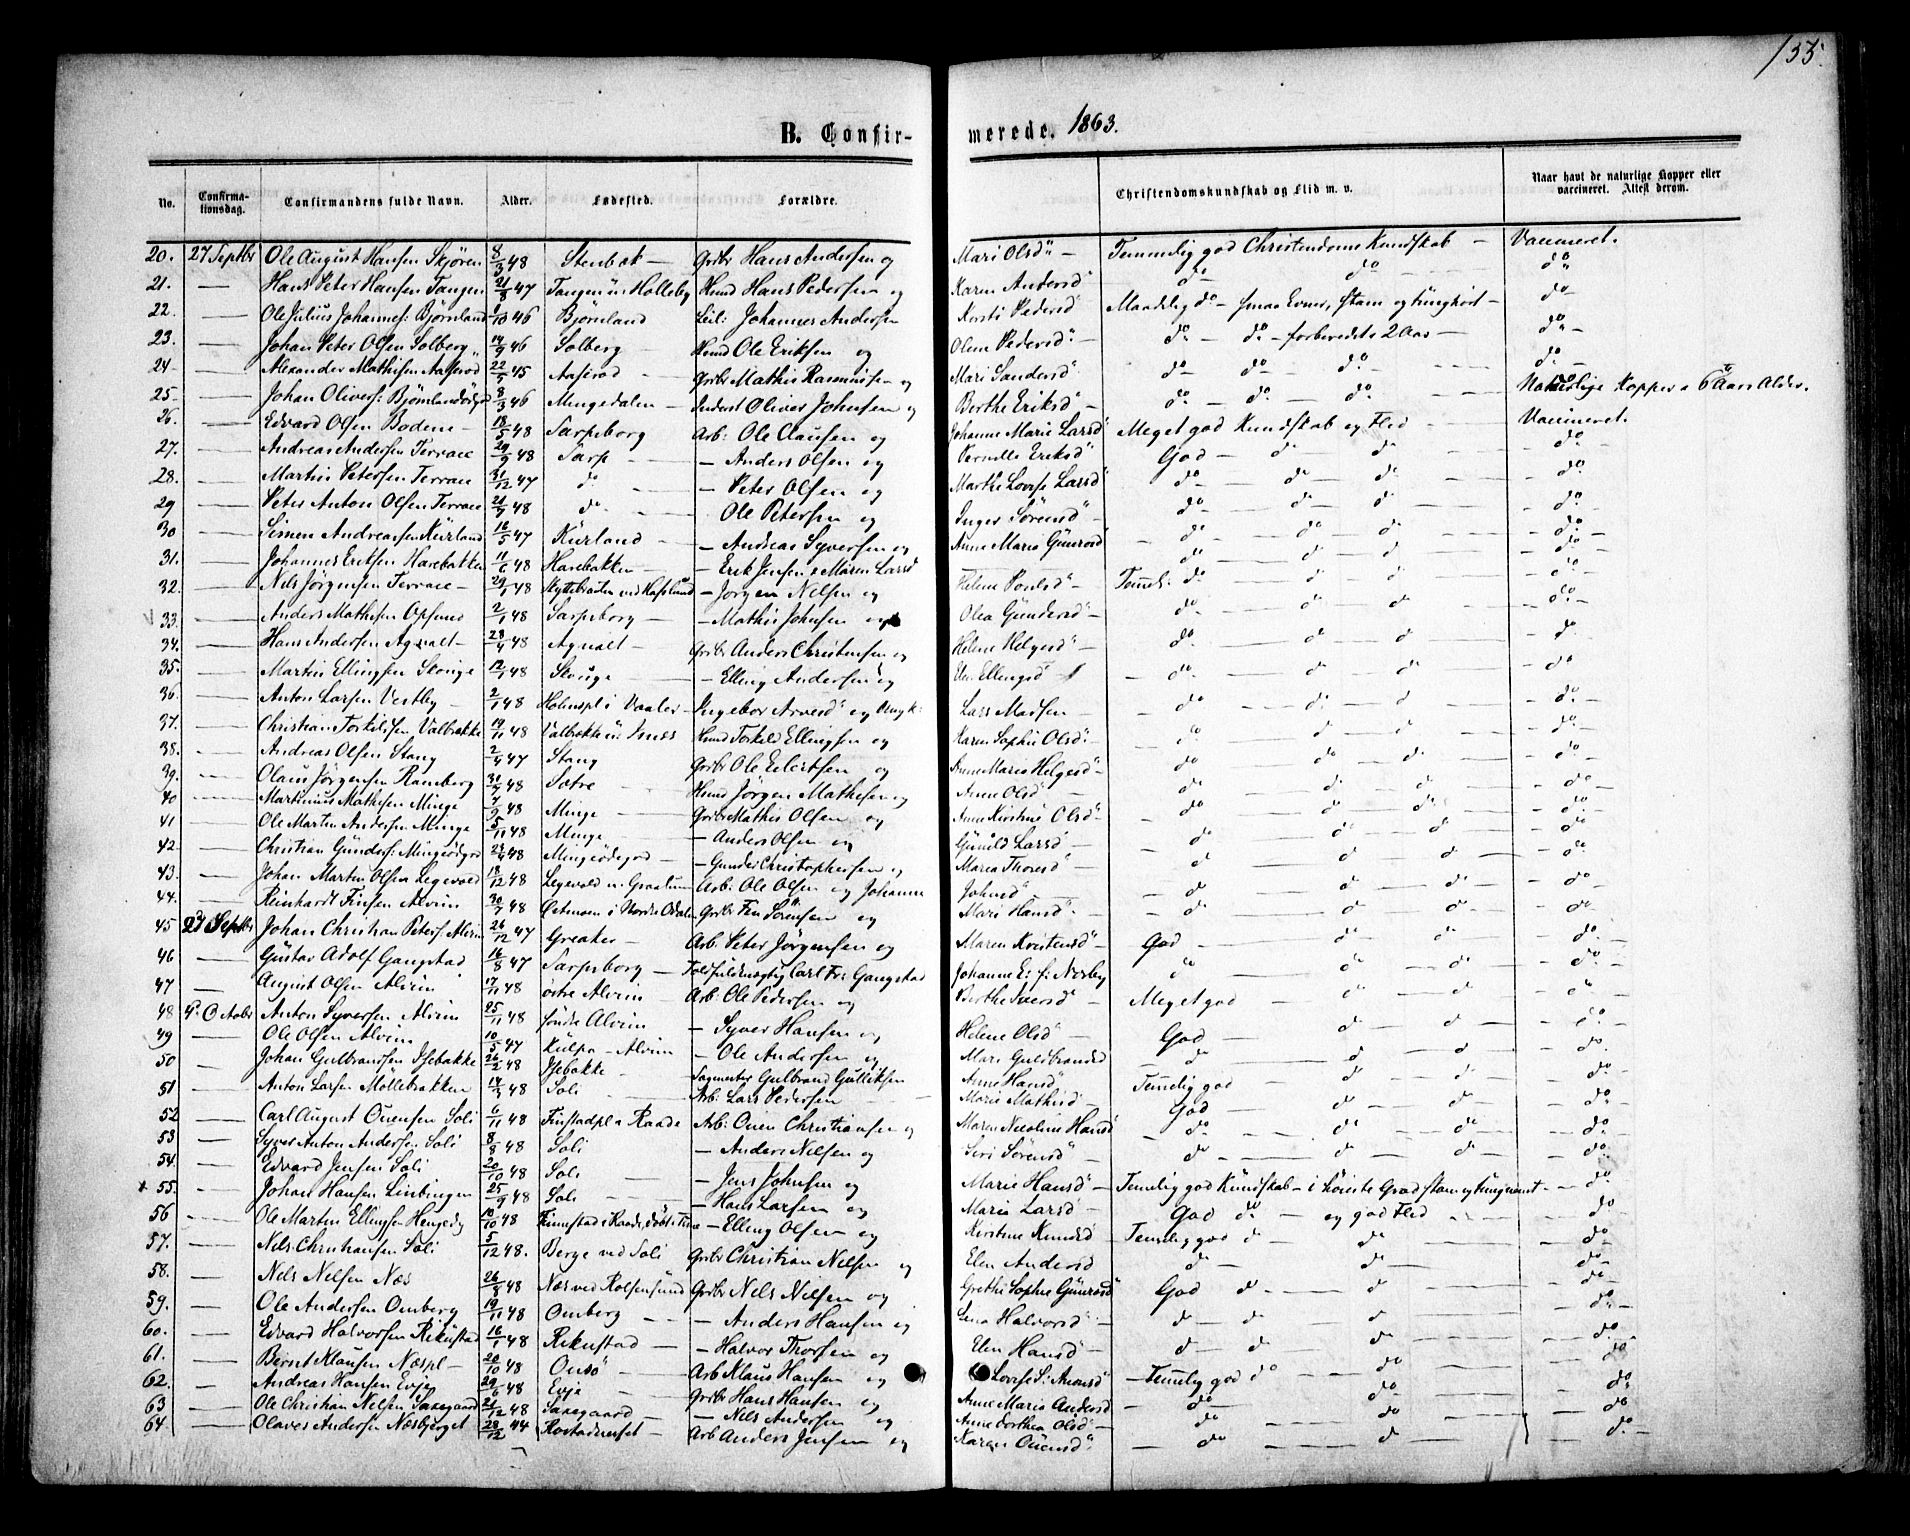 155.
B. Confir- merede. 1863.
No. Confirma-tionsdag. Confirmandens fulde Navn. Alder. Fødested. Forældre. Christendomskundskab og Flid m. v. Naar havt de naturlige Kopper eller vaccineret. Attest derom.
20. 27 Septbr Ole August Hansen Skjøren 8/3 48 Stenbæk — Grdbr Hans Andersen og Mari Olsd" — Temmelig god Christendoms Kundskab — Vaccineret.
21. — Hans Peter Hansen Tangen 21/8 47 Tangen u: Holleby Huusmd Hans Pedersen og Karen Andersd" do — do — do
22. — Ole Julius Johannes: Bjørnland /10 46 Bjørnland Leil: Johannes Andersen Kirsti Pedersd" Maadelig do — smaa Evner, stam og tunghørt — do —
23. — Johan Peter Olsen Solberg 14/9 46 Solberg — Huusmd Ole Eriksen og Olene Pedersd" — do — do — forberedets 2 Aar — do —
24 — Alexander Mathisen Aaserød 22/5 45 Aaserød — Grdbr Mathis Rasmusen og Mari Sandersd" do — do — do — do —
25 — Johan Olivers: Bjørnlandødgd 8/3 46 Mingedalen — Inderst Oliver Johnsen og Berthe Eriksd" — do — do — do Naturlige Kopper 6 Aars Alder.
26. — Edvard Olsen Bodene — 18/5 48 Sarpsborg Arb: Ole Clausen og Johanne Marie Larsd" — Meget god Kundskab og Flid — Vaccineret.
27. — Andreas Andersen Terrace 29/9 48 Sarp — — Anders Olsen og Pernille Eriksd" God — do do — do —
28. — Martin Petersen Terrace 31/12 47 do — — Peter Olsen og Marthe Lovise Larsd" do — do — do — do
29 — Peter Anton Olsen Terrace 21/7 48 do — Ole Petersen og Inger Sørensd" — do — do — do — do —
30 — Simen Andreassen Kurland 16/5 47 Kurland — — Andreas Syversen og Anne Marie Gunrød — do — do — do — do —
31. — Johannes Eriksen Hasebakken 11/6 48 Hasebakken — — Erik Jensen & Maren Larsd — do — do — do — do —
32. — Nils Jørgensen Terrace — 29/1 48 ved Hafslund — Jørgen Nelsen og Helene Poulsd" — Temel: do — do — do — do —
33. — Anders Mathisen Opsund 2/1 48 Sarpsborg — — Mathis Johnsen og Olea Gundersd" — do — do — do — do —
34. — Hans Andersen Agnalt — 28/4 48 Agnalt — Grdbr Anders Christensen og Helene Helgesd" — do — do — do — do.
35. — Martin Ellingsen Skonge 12/1 48 Skonge — — Elling Andersen og Ellingsd" — do — do — do — do
36. — Anton Larsen Vestby — 2/1 48 Holmspl i Vaaler — Ingebor Arvesd" og Lars Madsen — — do — do — do — do —
37. — Christian Torkildsen Valbrække 19/11 48 Valbrække u: Huusmd Torkild Ellingsen og Karen Sophie Olsd" — — do — do — do — do —
38. — Andreas Olsen Stang 2/4 47 Stang Grdbr Ole Eilertsen og Anne Marie Helgesd" — do — do — do — do
39. — Olaus Jørgensen Ramberg 30/7 48 Sætre — Huusmd Jørgen Mathisen og Anne Olsd" — do — do — do — do
40 — Martinius Mathisen Minge 4/9 48 Minge — Grdbr Mathis Olsen og Anne Kirstine Olsd" — do — do — do — do.
41 — Ole Martin Andersen Minge 5/11 48 Minge — — Anders Olsen og Gunild Larsd" — do — do — do — do
42. — Christian Gunders: Mingeødgrd 23/4 48 Mingeødegrd — — Gunder Christophersen og Maren Thoresd" — do — do — do — do.
43. — Johan Martin Olsen Legevold 18/12 48 Legevold u. Graatun Arb: Ole Olsen og Johanne Johnsd" — do — do — do — do
44. — Reinhardt Finsen Alvim 30/7 48 Østmoen i Nordre Odalen Grdbr Fin Sørensen og Mari Hansd" — do — do — do — do
45 27 Septbr Johan Christian Peters: Alvim 26/12 47 Greaker — Arb. Peter Jørgensen og Maren Kristensd" — God — do — do — do. —
46 — Gustav Adolf Gangstad 16/8 47 Sarpsborg — Toldfuldmægtig Carl Fr: Gangstad Johanne E: f: Næsby do — do — do — do. —
47 — August Olsen Alvim 17/11 48 østre Alvim — Arb: Ole Pedersen og Berthe Iversd" — Meget god — do — do — do —
48 4. Octobr Anton Syversen Alvim 25/11 48 søndre Alvim — Syver Hansen og Helene Olsd" God — do — do — do. —
49 — Ole Olsen Alvim 10/5 47 Kulpe — Alvim — Ole Andersen og Mari Guldbrandsd — do — do — do — do.
50 — Johan Gulbrandsen Isebakke 26/2 48 Isebakke — Sagmester Gulbrand Gulliksen Anne Hansd" Temelig god — do — do — do.
51 — Anton Larsen Møllebakken 14/3 48 Soli — Arb: Lars Pedersen — Marie Mathisd" — God — do — do — do. —
52 — Carl August Ouensen Soli 6/11 48 Finstadpl i Raade Arb: Ouen Christiansen og Maren Nicoline Hansd" — do — do — do — do —
53 — Syver Anton Andersen Soli 8/8 48 Soli — Anders Nelsen og Siri Sørensd" — do — do — do — do —
54. — Edvard Jensen Soli 20/10 48 Soli — — Jens Johnsen og Marie Hansd" — Temelig god Kundskab — i høieste Grad stam og tungnemt — do
55. — Johan Hansen Linbingen 25/9 48 Soli — — Hans Larsen og Maria Larsd" — God do — og god Flid — do
56 — Ole Martin Ellingsen Hengedy 10/10 48 Finnestad i Raade, døbt i Tune — Elling Olsen og Kirstine Knudsd — Temelig god do — do — do
57. — Nils Christiansen Soli 5/12 48. Berge ved Soli Grdbr Christian Nelsen og Elen Andersd — do — do — do
58. — Nels Nelsen Næs 26/8 48 Næs ved Rolfsøsund Grdbr Nels Nelsen og Grethe Sophie Gunrød" God do — do — do —
59. — Ole Andersen Omberg 19/11 48 Omberg — — Anders Hansen og Lena Halvorsd" — do — do — do — do —
60. — Edvard Halvorsen Rikustad 16/1 48 Rikustad — — Halvor Thorsen og Elen Hansd" — do — do — do — do —
61. — Bernt Klausen Næspl — 20/10 48 Ousø — Arb Klaus Hansen og Lovise S: Amonsd" — Temelig god do — do — do —
62. — Andreas Hansen Evje 29/6 48 Evje — Grdbr Hans Hansen og Anne Marie Andersd — do — do — do
63 — Ole Christian Nelsen Saxegaard 21/12 48 Saxegaard — — Nils Andersen og Anne Dorthea Olsd" — do — do — do
64 — Olaves Andersen Næsbjerget 28/12 44 — Arb Anders Jensen og Karen Ouensd" — do — do — do. —